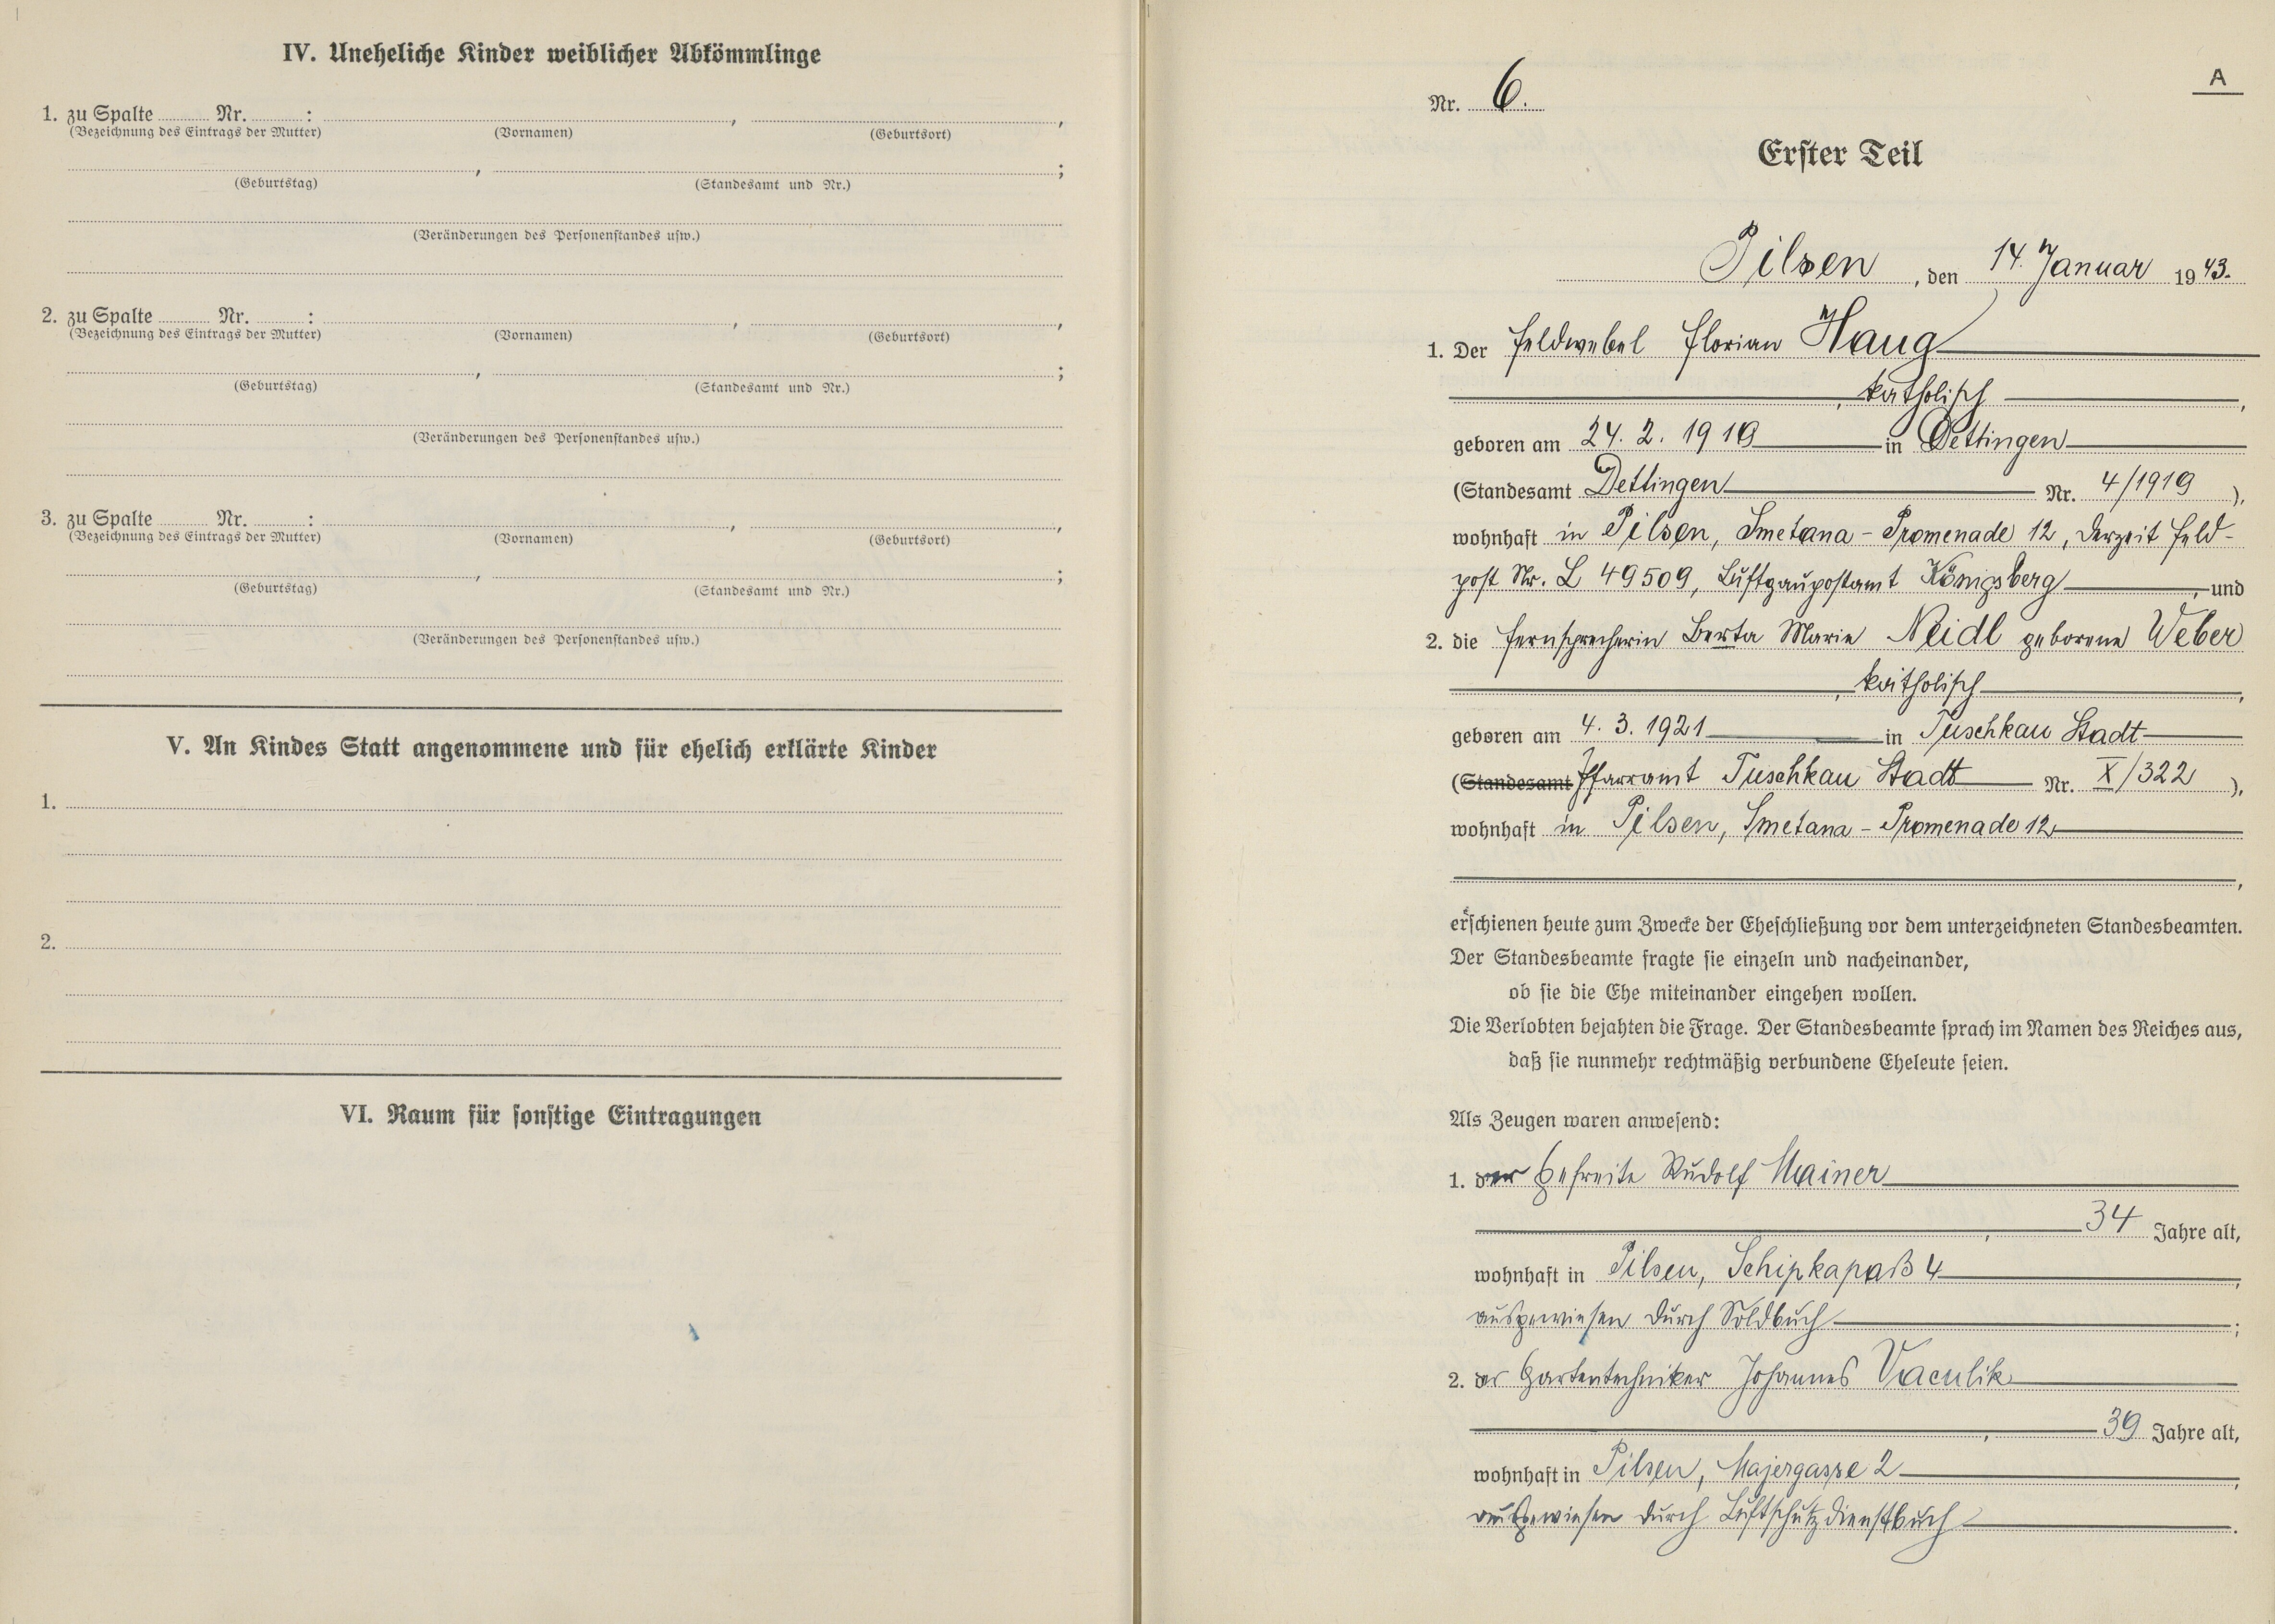 IV. Uneheliche Kinder weiblicher Abkömmlinge
1. zu Spalte Nr. : , ,
(Bezeichnung des Eintrags der Mutter) (Vornamen) (Geburtsort)
, ;
(Geburtstag) (Standesamt und Nr.)
(Veränderungen des Personenstandes usw.)
2. zu Spalte Nr. : , ,
(Bezeichnung des Eintrags der Mutter) (Vornamen) (Geburtsort)
, ;
(Geburtstag) (Standesamt und Nr.)
(Veränderungen des Personenstandes usw.)
3. zu Spalte Nr. : , ,
(Bezeichnung des Eintrags der Mutter) (Vornamen) (Geburtsort)
, ;
(Geburtstag) (Standesamt und Nr.)
(Veränderungen des Personenstandes usw.)
V. An Kindes Statt angenommene und für ehelich erklärte Kinder
1.
2.
VI. Raum für sonstige Eintragungen
A
Nr. 6.
Erster Teil
Pilsen, den 14. Januar 1943.
1. Der Feldwebel Florian Haug
, katholisch,
geboren am 24. 2. 1919 in Dettingen
(Standesamt Dettingen Nr. 4/1919),
wohnhaft in Pilsen, Smetana-Promenade 12, derzeit Feld-
post Nr. L 49509, Luftgaupostamt Königsberg, und
2. die Fernsprecherin Berta Marie Neidl geborene Weber
, katholisch,
geboren am 4. 3. 1921 in Tuschkau Stadt
(Standesamt Pfarramt Tuschkau Stadt Nr. X/322),
wohnhaft in Pilsen, Smetana-Promenade 12
,
erschienen heute zum Zwecke der Eheschließung vor dem unterzeichneten Standesbeamten.
Der Standesbeamte fragte sie einzeln und nacheinander,
ob sie die Ehe miteinander eingehen wollen.
Die Verlobten bejahten die Frage. Der Standesbeamte sprach im Namen des Reiches aus,
daß sie nunmehr rechtmäßig verbundene Eheleute seien.
Als Zeugen waren anwesend:
1. der Gefreite Rudolf Mainer
, 34 Jahre alt,
wohnhaft in Pilsen, Schipkapaß 4,
ausgewiesen durch Soldbuch;
2. der Gartentechniker Johannes Vaculik
, 39 Jahre alt,
wohnhaft in Pilsen, Majergasse 2,
ausgewiesen durch Luftschutzdienstbuch.